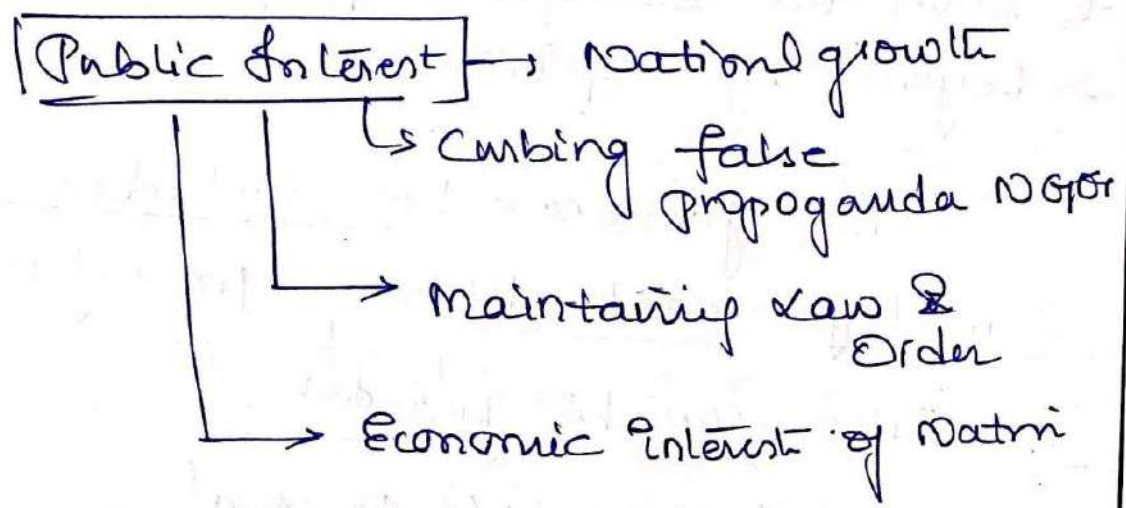 Public Interest → National growth
↳ Curbing false
propoganda NGOs
→ Maintaining Law &
Order
→ Economic interest of Nation